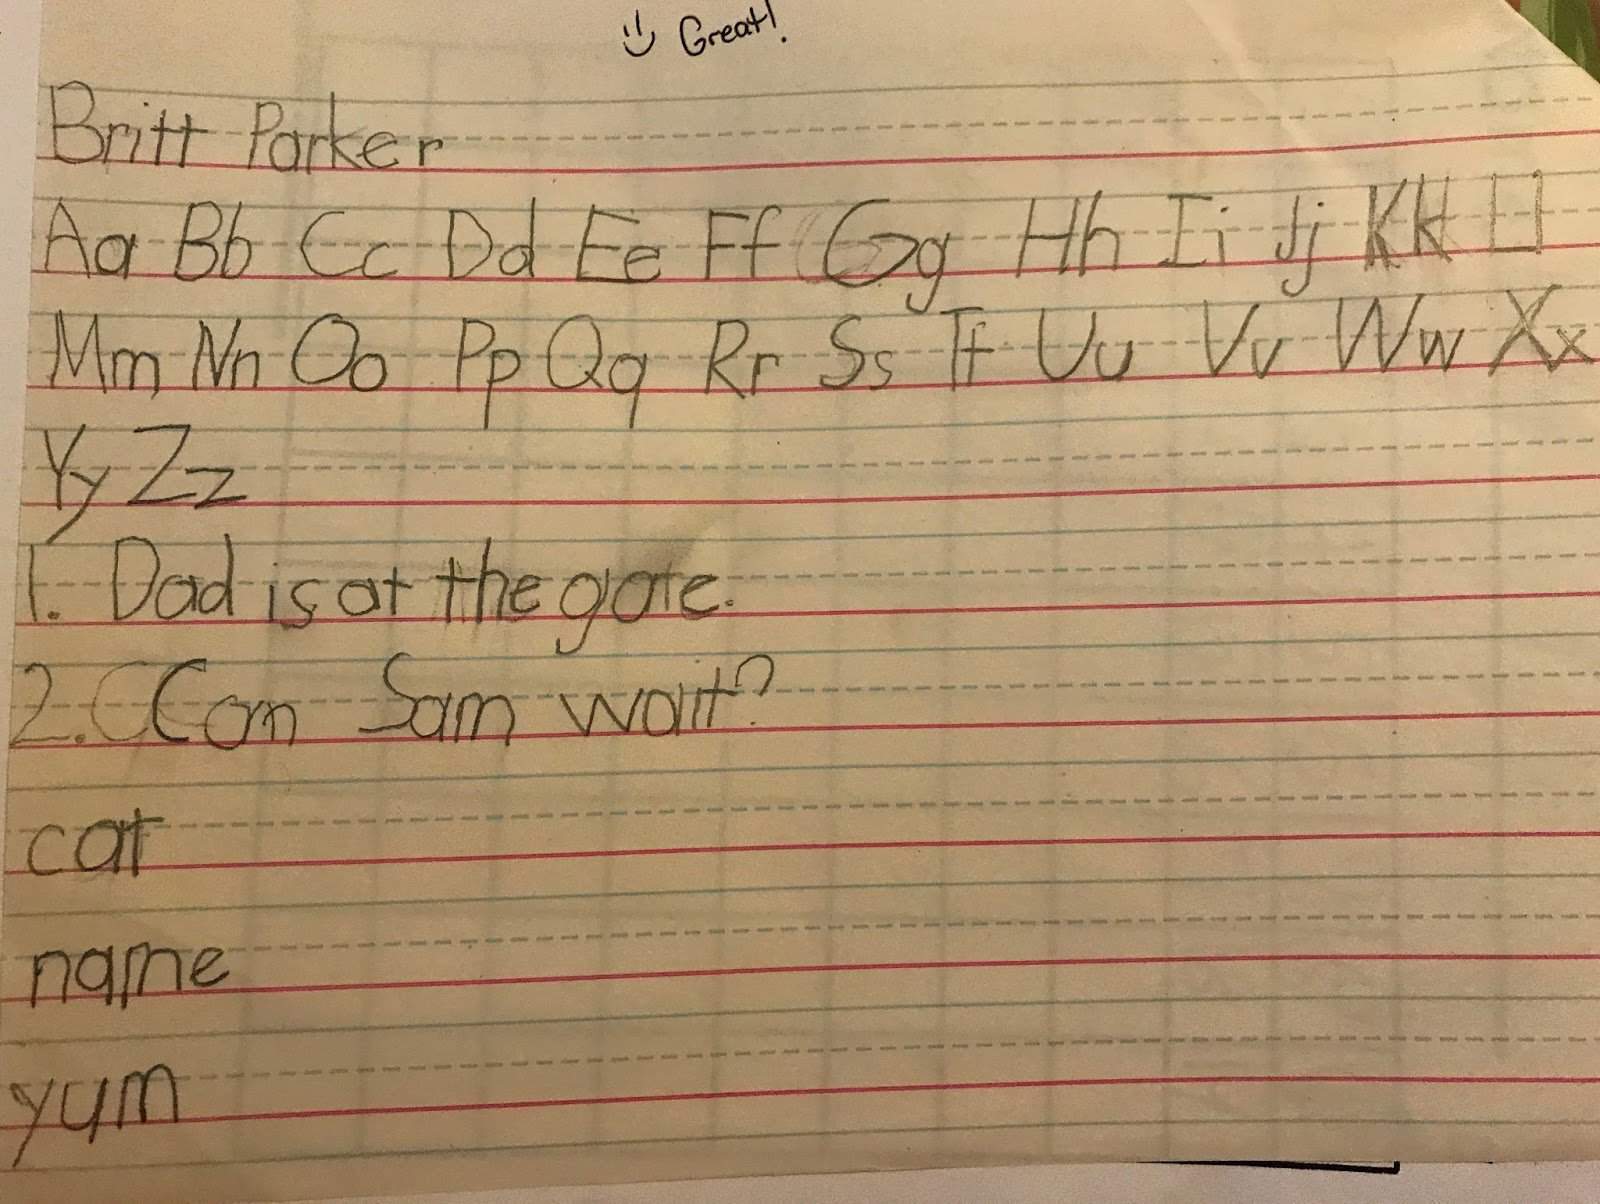 Great!
Britt Parker
Aa Bb Cc Dd Ee Ff Gg Hh Ii Jj Kk Ll
Mm Nn Oo Pp Qq Rr Ss Tt Uu Vv Ww Xx
Yy Zz
1. Dad is at the gate.
2. CCan Sam wait?
cat
name
yum